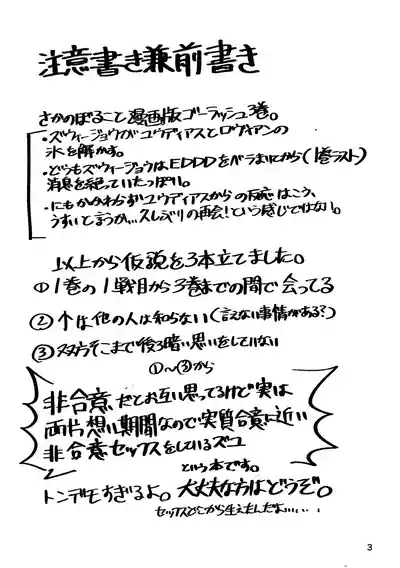 注意書き兼前書き
さかのぼること漫画版ゴーラッシュ3巻。
・ズウィージョウがユウディアスとロヴィアンの
氷を解かす。
・どうもズウィージョウはEDDDをバラまいてから(1巻ラスト)
消息を絶っていたっぽい。
・にもかかわらずユウディアスからの反応はこう、
うすいと言うか…久しぶりの再会!という感じではない。
以上から仮説を3本立てました。
①1巻の1戦目から3巻までの間で会ってる
②↑は他の人は知らない(言えない事情がある?)
③双方そこまで後ろ暗い思いをしていない
①〜③から
非合意だとお互い思ってるけど実は
両片想い期間なので実質合意に近い
非合意セックスをしているズユ
という本です。
トンデモすぎるよ。大丈夫な方はどうぞ。
セックスどこから生えたんだよ……
3